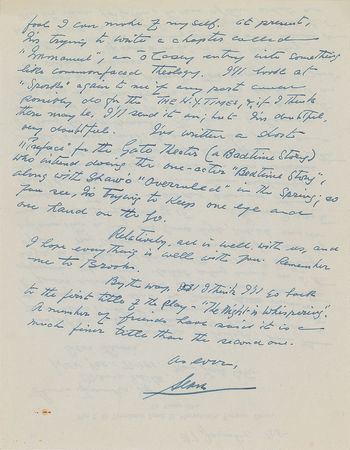 fool I can make of myself, at present,
I'm trying to write a chapter called
"Immanuel", an O'Casey entry into something
like commonfaced theology. I'll look at
"Sparks" again to see if any part
possibly do for the THE N.Y. TIMES, & if I think
there may be, I'll send it on; but I'm doubtful,
very doubtful. I've written a short
"Preface" for the Gate Theater (a Bedtime Story)
who intend doing the one-acter "Bedtime Story",
along with Shaw's "Overruled" in the Spring; so
you see, I'm trying to keep one eye and
one hand on the go.
Relatively, all is well with us, and
I hope everything is well with you. Remember
me to Brooks.
By the way, I think I'll go back
to the first title of the play - "The Night is Whispering".
A number of friends have said it is a
much finer title than the second one.
As ever,
Sean